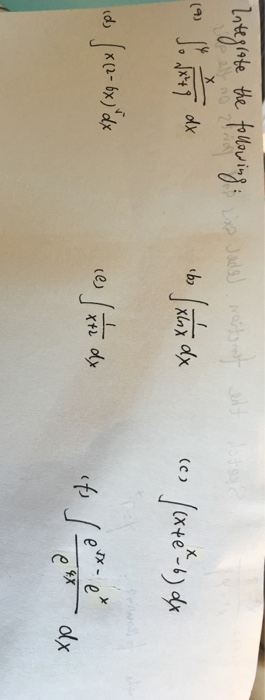 Integrate the following:
(a) ∫₀⁴ x/√(x²+9) dx (b) ∫ 1/(x ln x) dx (c) ∫ (x+eˣ-6) dx
(d) ∫ x(2-6x)⁵ dx (e) ∫ 1/(x+2) dx (f) ∫ (e⁵ˣ - eˣ)/e⁴ˣ dx